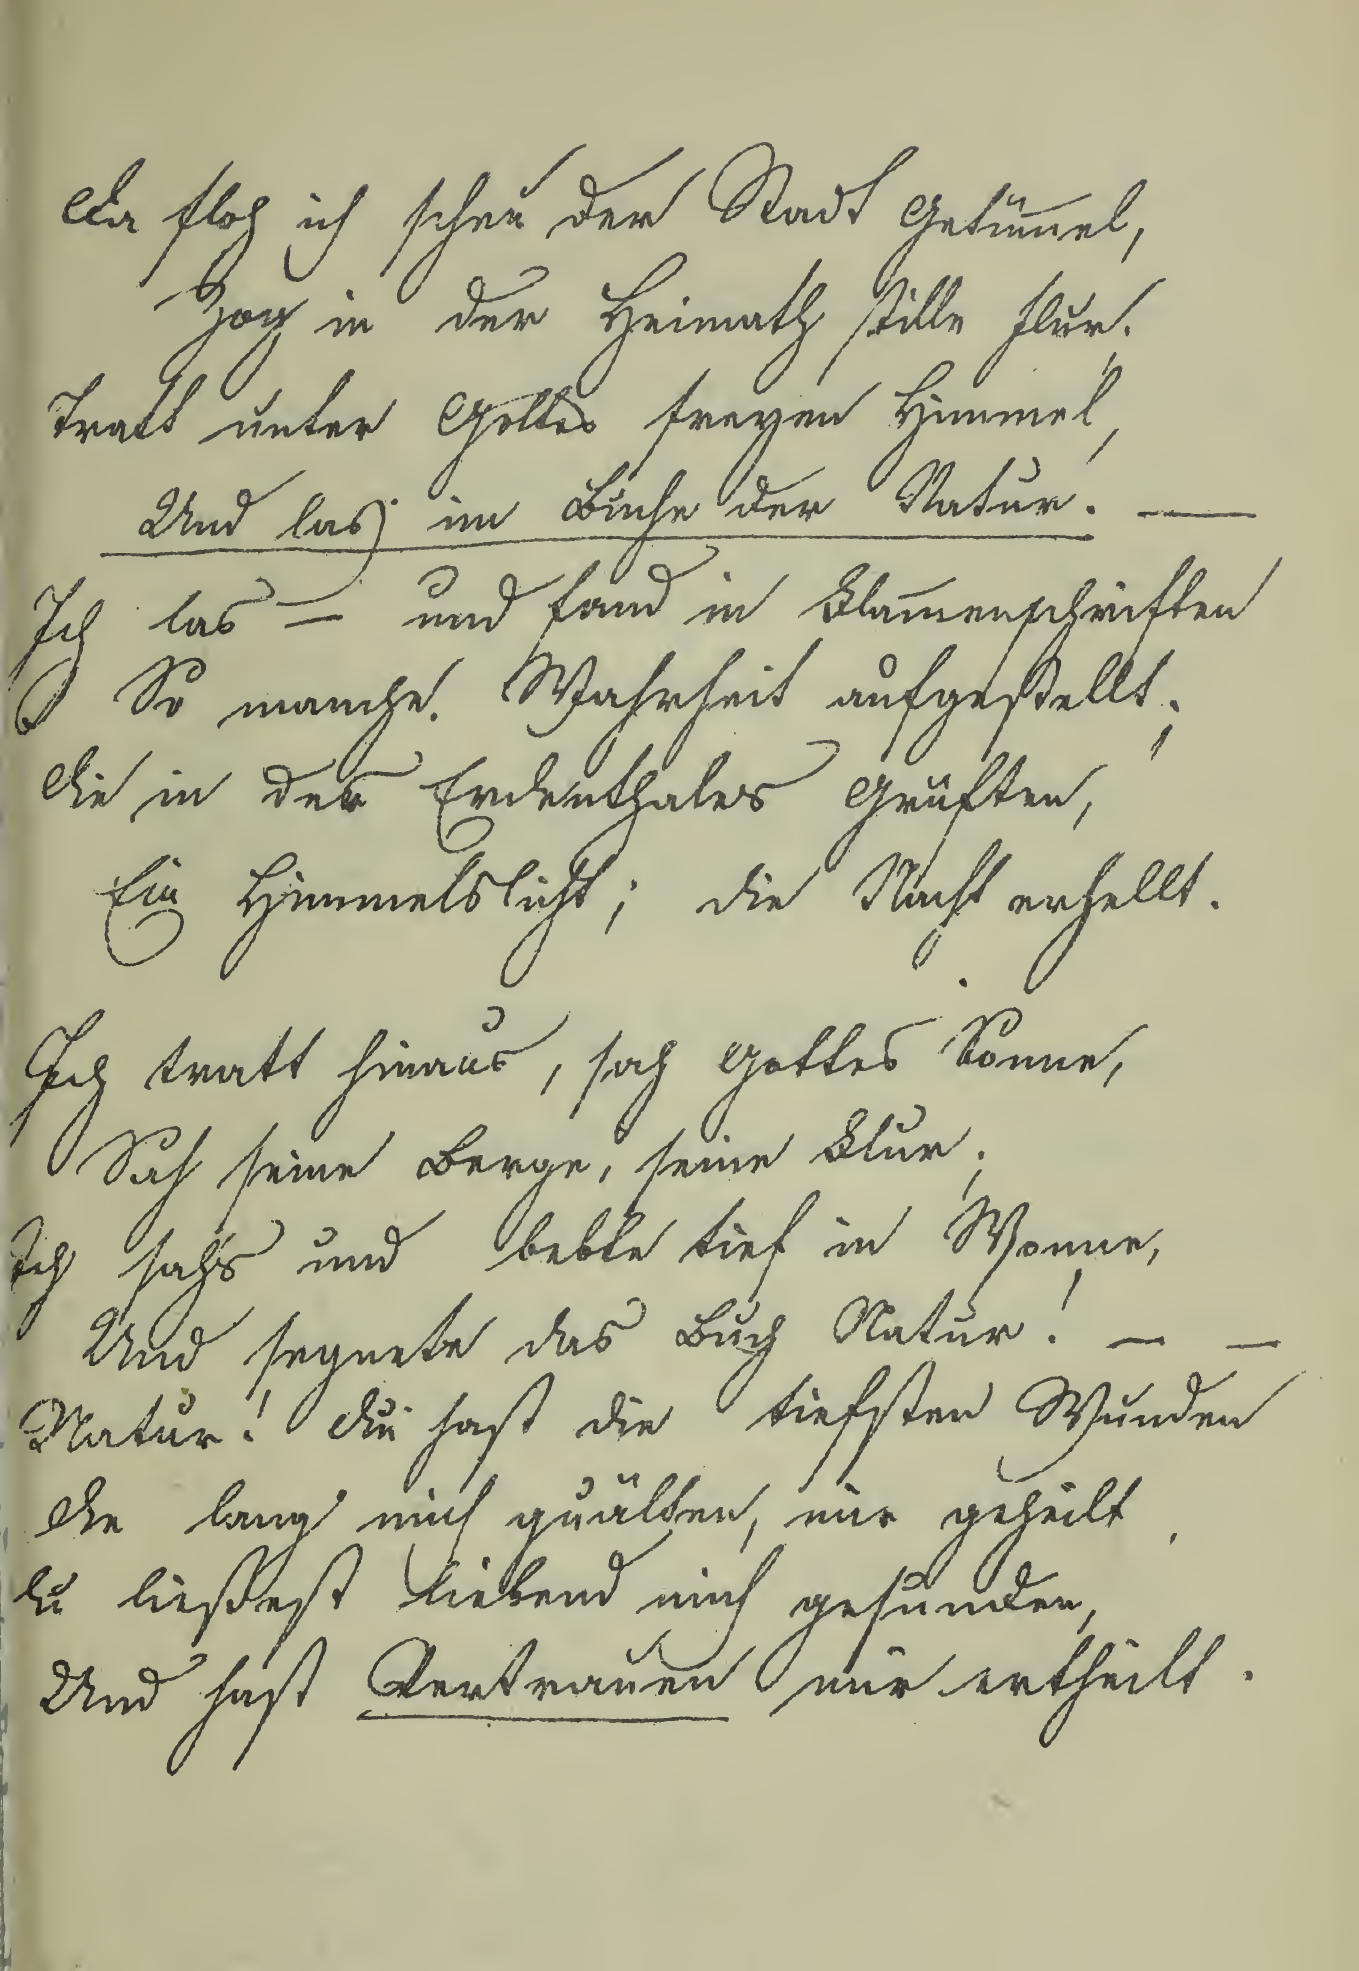 Da floh ich scheu der Stadt Getümmel,
Zog in der Heimath stille Flur.
Tratt unter Gottes freyen Himmel,
Und las im Buche der Natur. —
Ich las — und fand in Blumenschriften
So manche Wahrheit aufgestellt;
Die in des Erdenthales Grüften,
Ein Himmelslicht; die Nacht erhellt.
Ich tratt hinaus, sah Gottes Sonne,
Sah seine Berge, seine Flur;
Ich sah's und bebte tief in Wonne,
Und segnete das Buch Natur! — —
Natur! Du hast die tiefsten Wunden
Die lang mich quälten, mir geheilt,
Du ließest liebend mich gesunden,
Und hast Vertrauen mir ertheilt.